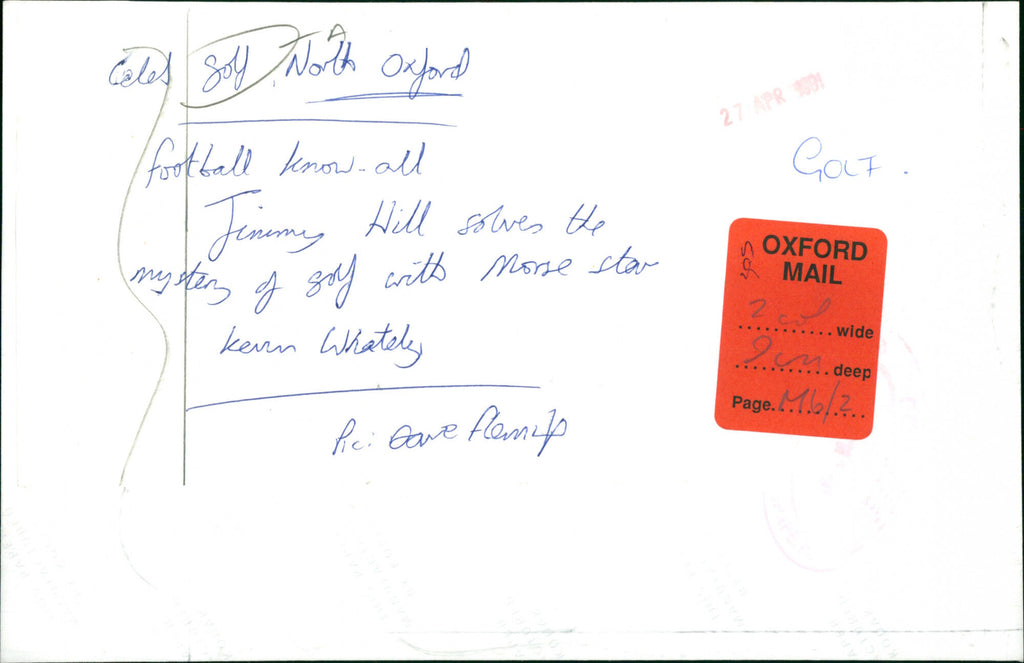 Celeb golf North Oxford
A
27 APR 1991
football know-all
Jimmy Hill solves the
mystery of golf with Morse star
Kevin Whately
Pic: Dave Fleming
GOLF.
OXFORD
MAIL
2 col wide
9cm deep
Page M6/2